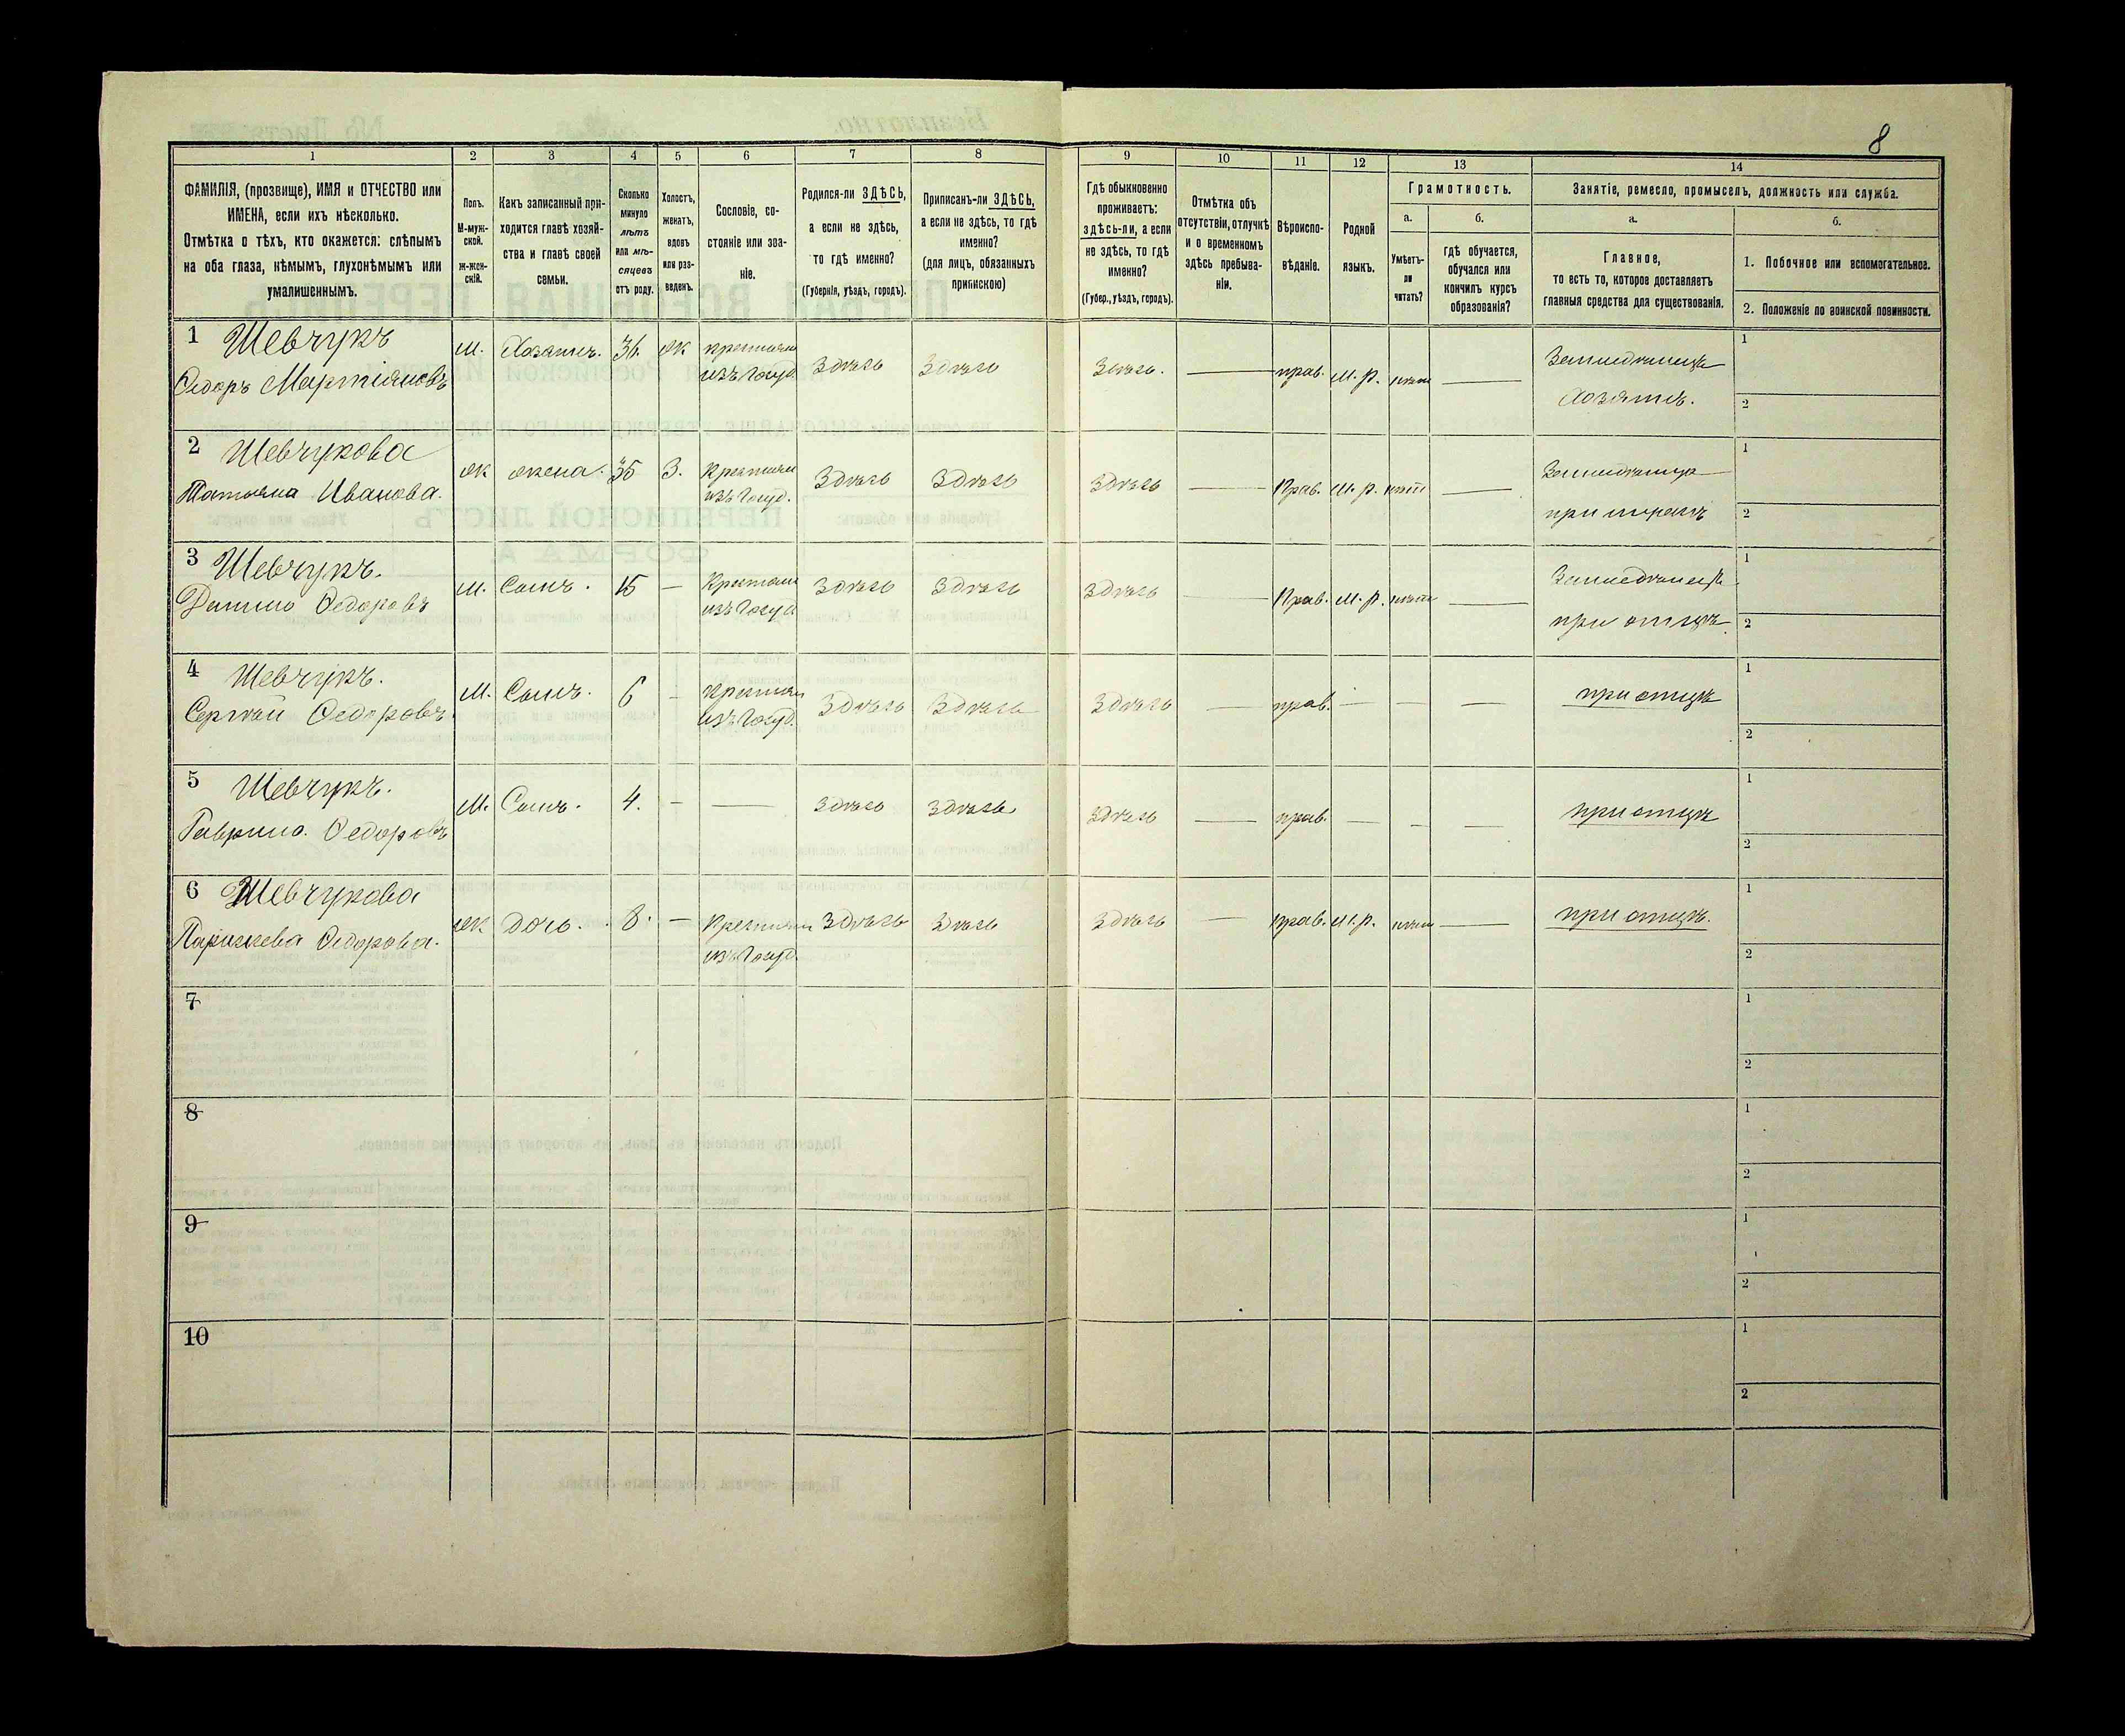 8
1 2 3 4 5 6 7 8 9 10 11 12 13 14
ФАМИЛІЯ, (прозвище), ИМЯ и ОТЧЕСТВО или
ИМЕНА, если ихъ нѣсколько.
Отмѣтка о тѣхъ, кто окажется: слѣпымъ
на оба глаза, нѣмымъ, глухонѣмымъ или
умалишеннымъ.
Полъ.
М-муж-
ской.
Ж-жен-
скій.
Какъ записанный при-
ходится главѣ хозяй-
ства и главѣ своей
семьи.
Сколько
минуло
лѣтъ
или мѣ-
сяцевъ
отъ роду.
Холостъ,
женатъ,
вдовъ
или раз-
веденъ.
Сословіе, со-
стояніе или зва-
ніе.
Родился-ли ЗДѢСЬ,
а если не здѣсь,
то гдѣ именно?
(Губернія, уѣздъ, городъ).
Приписанъ-ли ЗДѢСЬ,
а если не здѣсь, то гдѣ
именно?
(для лицъ, обязанныхъ
припискою)
Гдѣ обыкновенно
проживаетъ:
здѣсь-ли, а если
не здѣсь, то гдѣ
именно?
(Губер., уѣздъ, городъ).
Отмѣтка объ
отсутствіи, отлучкѣ
и о временномъ
здѣсь пребыва-
ніи.
Вѣроиспо-
вѣданіе.
Родной
языкъ.
Грамотность.
а.
Умѣетъ-
ли
читать?
б.
гдѣ обучается,
обучался или
кончилъ курсъ
образованія?
Занятіе, ремесло, промыселъ, должность или служба.
а.
Главное,
то есть то, которое доставляетъ
главныя средства для существованія.
б.
1. Побочное или вспомогательное.
2. Положеніе по воинской повинности.
1 Шевчукъ
Ѳедоръ Мартіяновъ
м. Хозяинъ. 36. ж крестьян
изъ Госуд.
Здѣсь Здѣсь Здѣсь. — прав. м. р. нѣтъ —
Земледѣлецъ
Хозяинъ.
1
2
2 Шевчукова
Татьяна Иванова.
ж жена. 35 З. Крестьян
изъ Госуд.
Здѣсь Здѣсь Здѣсь — Прав. м. р. нѣтъ —
при мужѣ
1
2
3 Шевчукъ.
Данило Ѳедоровъ
м. Сынъ. 15 — Крестьян
изъ Госуд
Здѣсь Здѣсь Здѣсь — Прав. м. р. нѣтъ —
Земледѣлецъ
при отцѣ
1
2
4 Шевчукъ.
Сергѣй Ѳедоровъ
м. Сынъ. 6 - крестьян
изъ Госуд.
Здѣсь Здѣсь Здѣсь — прав. — — —
при отцѣ
1
2
5 Шевчукъ.
Гаврило Ѳедоровъ
м. Сынъ. 4. - — здѣсь здѣсь здѣсь — прав. — — —
при отцѣ
1
2
6 Шевчукова
Параскева Ѳедорова.
ж дочь. 8. — Крестьян
изъ Госуд.
Здѣсь Здѣсь Здѣсь — прав. м. р. нѣтъ —
при отцѣ.
1
2
7
1
2
8
1
2
9
1
2
10
1
2